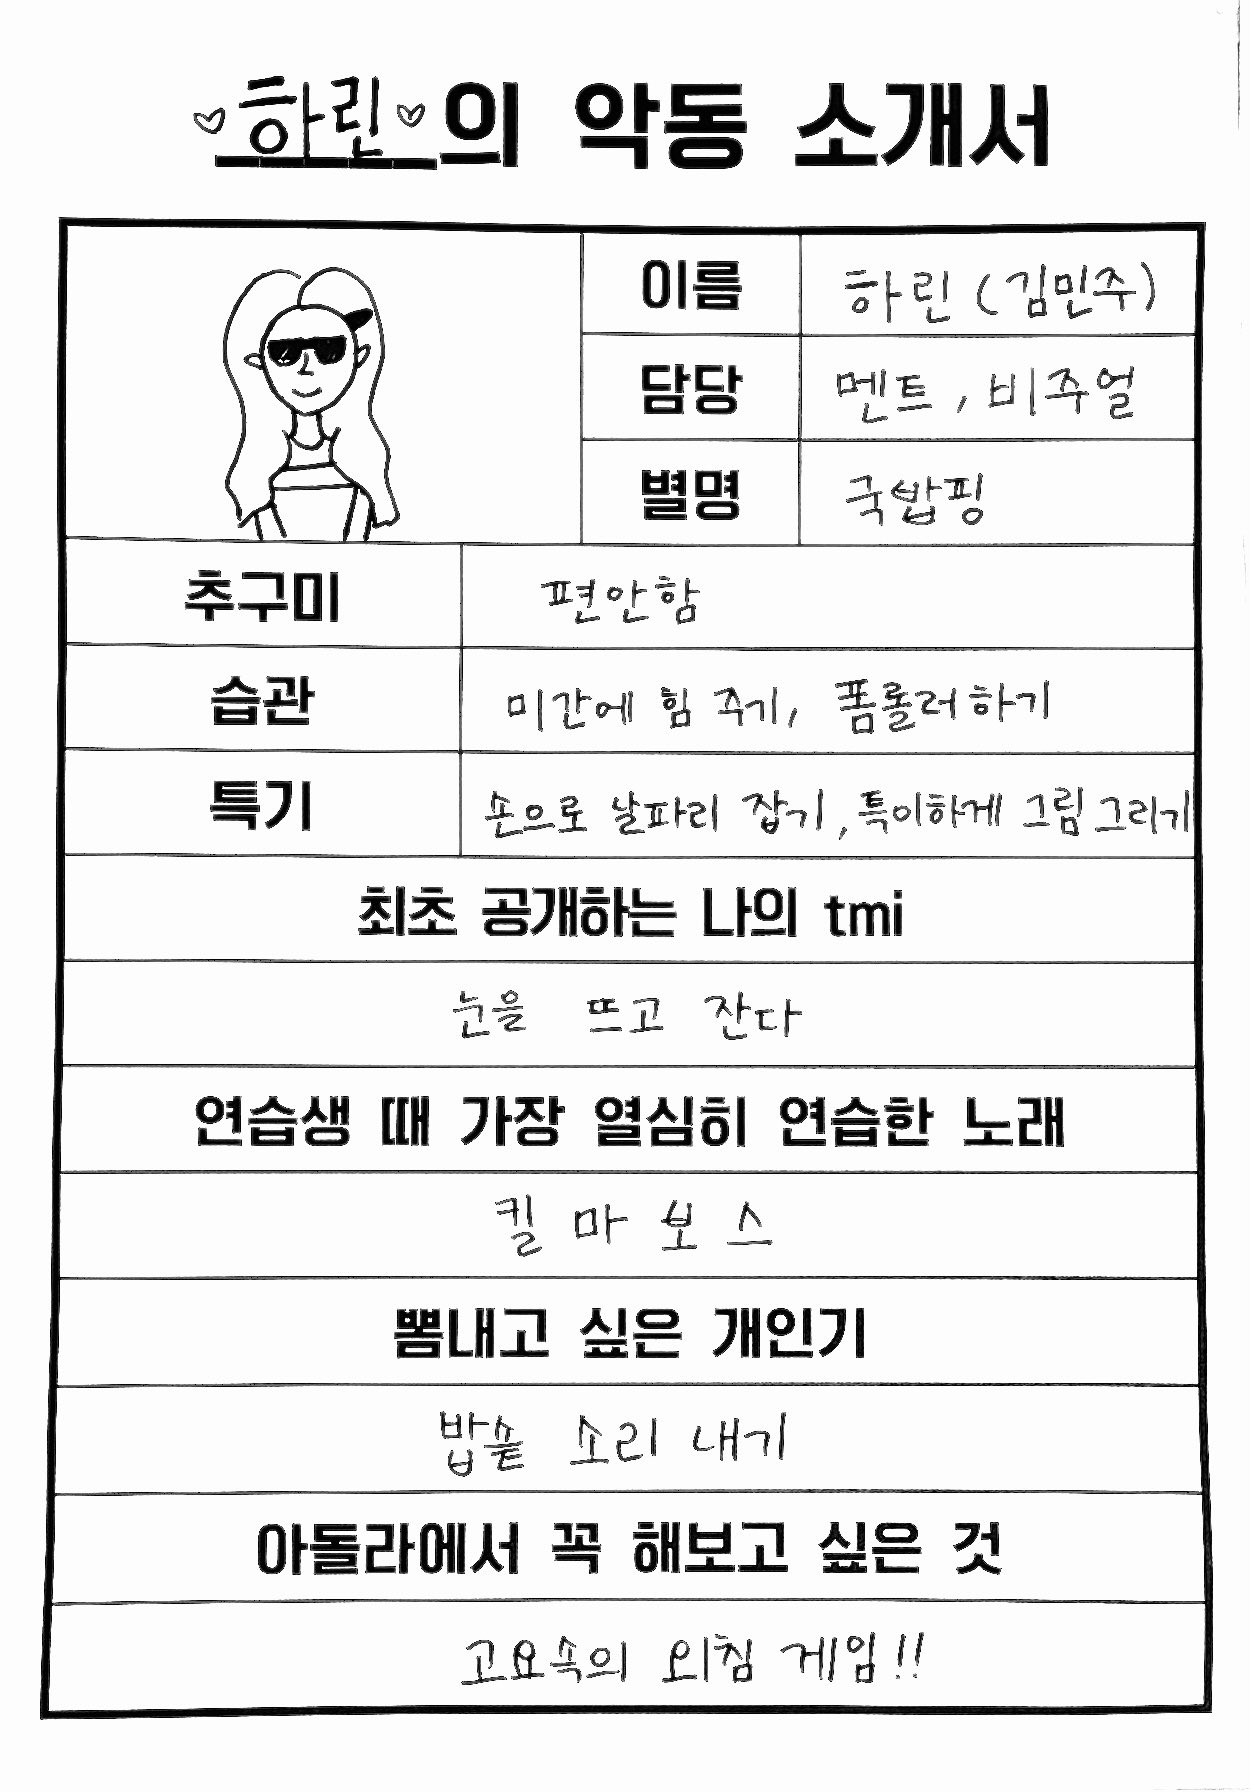 ♡하린♡의 악동 소개서
이름
하린 (김민주)
담당
멘트, 비주얼
별명
국밥핑
추구미
편안함
습관
미간에 힘 주기, 폼롤러하기
특기
손으로 날파리 잡기, 특이하게 그림그리기
최초 공개하는 나의 tmi
눈을 뜨고 잔다
연습생 때 가장 열심히 연습한 노래
킬 마 보 스
뽐내고 싶은 개인기
밥솥 소리 내기
아돌라에서 꼭 해보고 싶은 것
고요속의 외침 게임!!